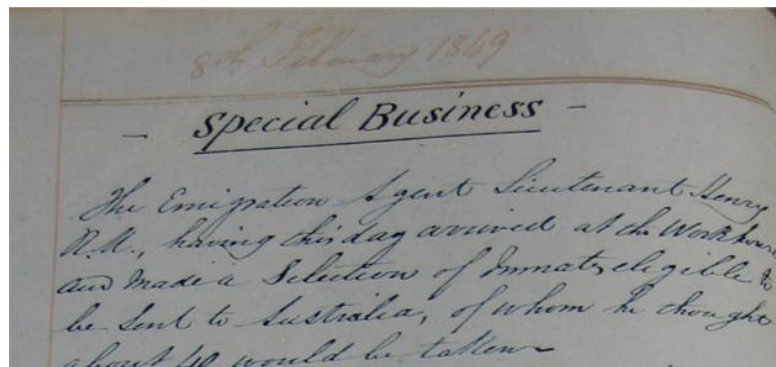 8th February 1849
- Special Business -
The Emigration Agent Lieutenant Henry
R.N., having this day arrived at the Workhouse
and made a Selection of Inmates eligible to
be sent to Australia, of whom he thought
about 40 would be taken-